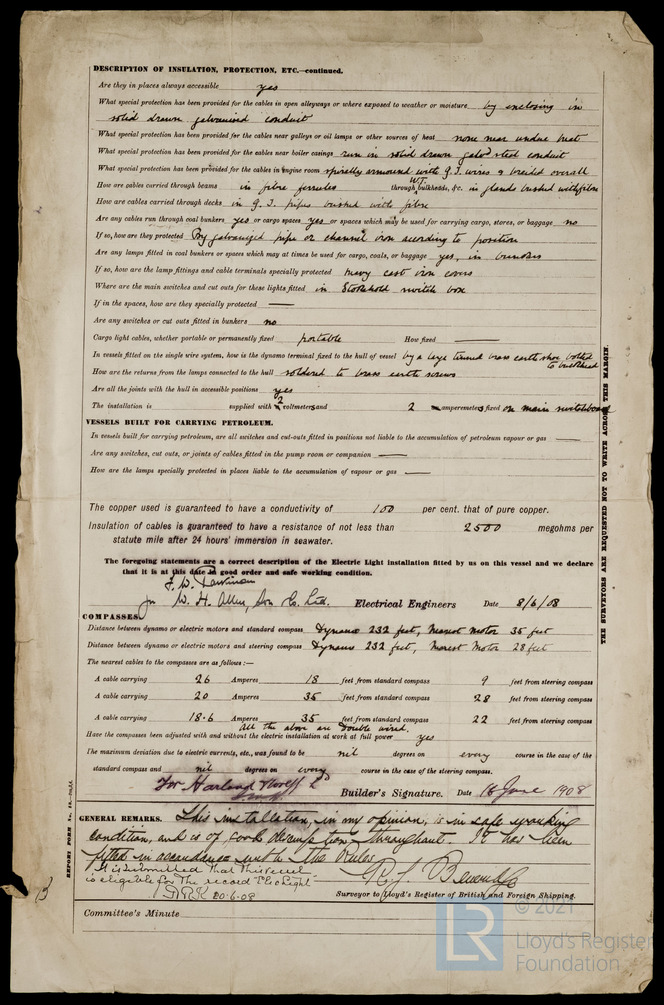 DESCRIPTION OF INSULATION, PROTECTION, ETC.—continued.
Are they in places always accessible yes
What special protection has been provided for the cables in open alleyways or where exposed to weather or moisture by enclosing in
solid drawn galvanised conduit
What special protection has been provided for the cables near galleys or oil lamps or other sources of heat none near undue heat
What special protection has been provided for the cables near boiler casings run in solid drawn galvd steel conduit
What special protection has been provided for the cables in engine room spirally armoured with G.I. wires & braided overall
How are cables carried through beams in fibre ferrules through W.T. bulkheads, &c. in glands bushed with fibre
How are cables carried through decks in G.I. pipes bushed with fibre
Are any cables run through coal bunkers yes or cargo spaces yes or spaces which may be used for carrying cargo, stores, or baggage no
If so, how are they protected By galvanized pipe or channel iron according to position
Are any lamps fitted in coal bunkers or spaces which may at times be used for cargo, coals, or baggage yes, in bunkers
If so, how are the lamp fittings and cable terminals specially protected heavy cast iron covers
Where are the main switches and cut outs for these lights fitted in Stokehold switch box
If in the spaces, how are they specially protected —
Are any switches or cut outs fitted in bunkers no
Cargo light cables, whether portable or permanently fixed portable How fixed —
In vessels fitted on the single wire system, how is the dynamo terminal fixed to the hull of vessel by a large tinned brass earth shoe bolted
to bulkhead
How are the returns from the lamps connected to the hull soldered to brass earth screws
Are all the joints with the hull in accessible positions yes
The installation is supplied with 2 voltmeters and 2 amperemeters fixed on main switchboard
VESSELS BUILT FOR CARRYING PETROLEUM.
In vessels built for carrying petroleum, are all switches and cut-outs fitted in positions not liable to the accumulation of petroleum vapour or gas —
Are any switches, cut outs, or joints of cables fitted in the pump room or companion —
How are the lamps specially protected in places liable to the accumulation of vapour or gas —
The copper used is guaranteed to have a conductivity of 100 per cent. that of pure copper.
Insulation of cables is guaranteed to have a resistance of not less than 2500 megohms per
statute mile after 24 hours' immersion in seawater.
The foregoing statements are a correct description of the Electric Light installation fitted by us on this vessel and we declare
that it is at this date in good order and safe working condition.
for W. H. Allen, Son & Co. Ltd. Electrical Engineers Date 8/6/08
COMPASSES.
Distance between dynamo or electric motors and standard compass Dynamo 232 feet, Nearest motor 35 feet
Distance between dynamo or electric motors and steering compass Dynamo 232 feet, Nearest Motor 28 feet
The nearest cables to the compasses are as follows:—
A cable carrying 26 Amperes 18 feet from standard compass 9 feet from steering compass
A cable carrying 20 Amperes 35 feet from standard compass 28 feet from steering compass
A cable carrying 18.6 Amperes 35 feet from standard compass 22 feet from steering compass
All the above are Double wired.
Have the compasses been adjusted with and without the electric installation at work at full power yes
The maximum deviation due to electric currents, etc., was found to be nil degrees on every course in the case of the
standard compass and nil degrees on every course in the case of the steering compass.
For Harland & Wolff Ld
Builder's Signature. Date 16 June 1908
GENERAL REMARKS. This installation, in my opinion, is in safe working
condition, and is of good description throughout. It has been
fitted in accordance with the Rules
It is submitted that this vessel
is eligible for the record "Elec Light"
20-6-08
R. F. Beveridge
Surveyor to Lloyd's Register of British and Foreign Shipping.
Committee's Minute
THE SURVEYORS ARE REQUESTED NOT TO WRITE ACROSS THIS MARGIN.
© 2021
LR
Lloyd's Register
Foundation